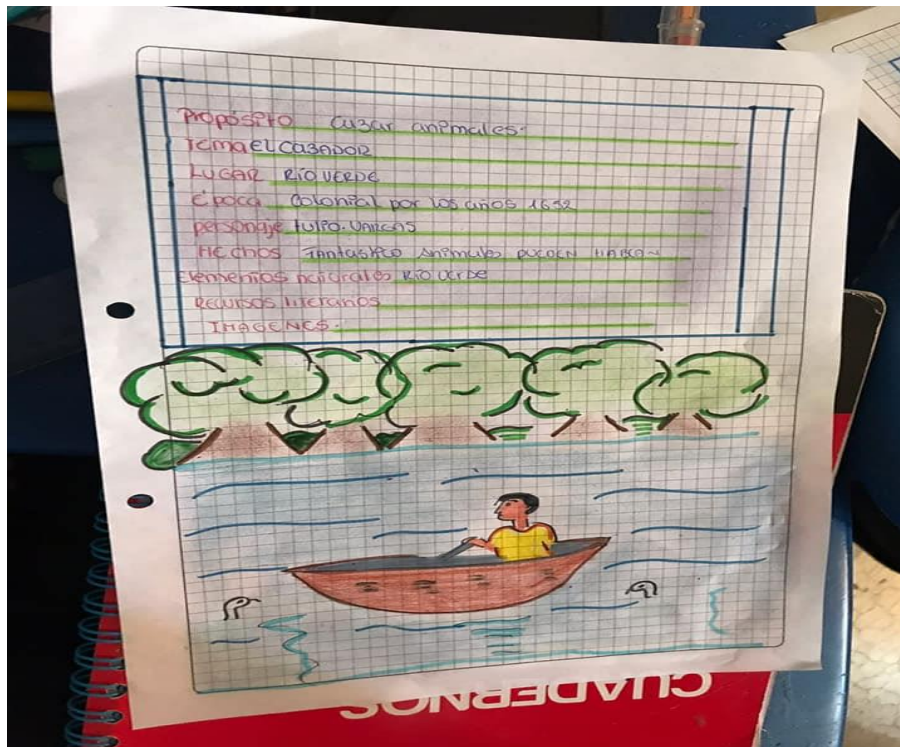 Propósito cazar animales.
Tema EL CAZADOR
LUGAR RÍO VERDE
Época Colonial por los años 1652
personaje tulio. VARGAS
HECHOS Fantastico Animales PUEDEN HABLAR
Elementos naturales Río verde
RECURSOS literarios
IMAGENES.
CUADERNOS